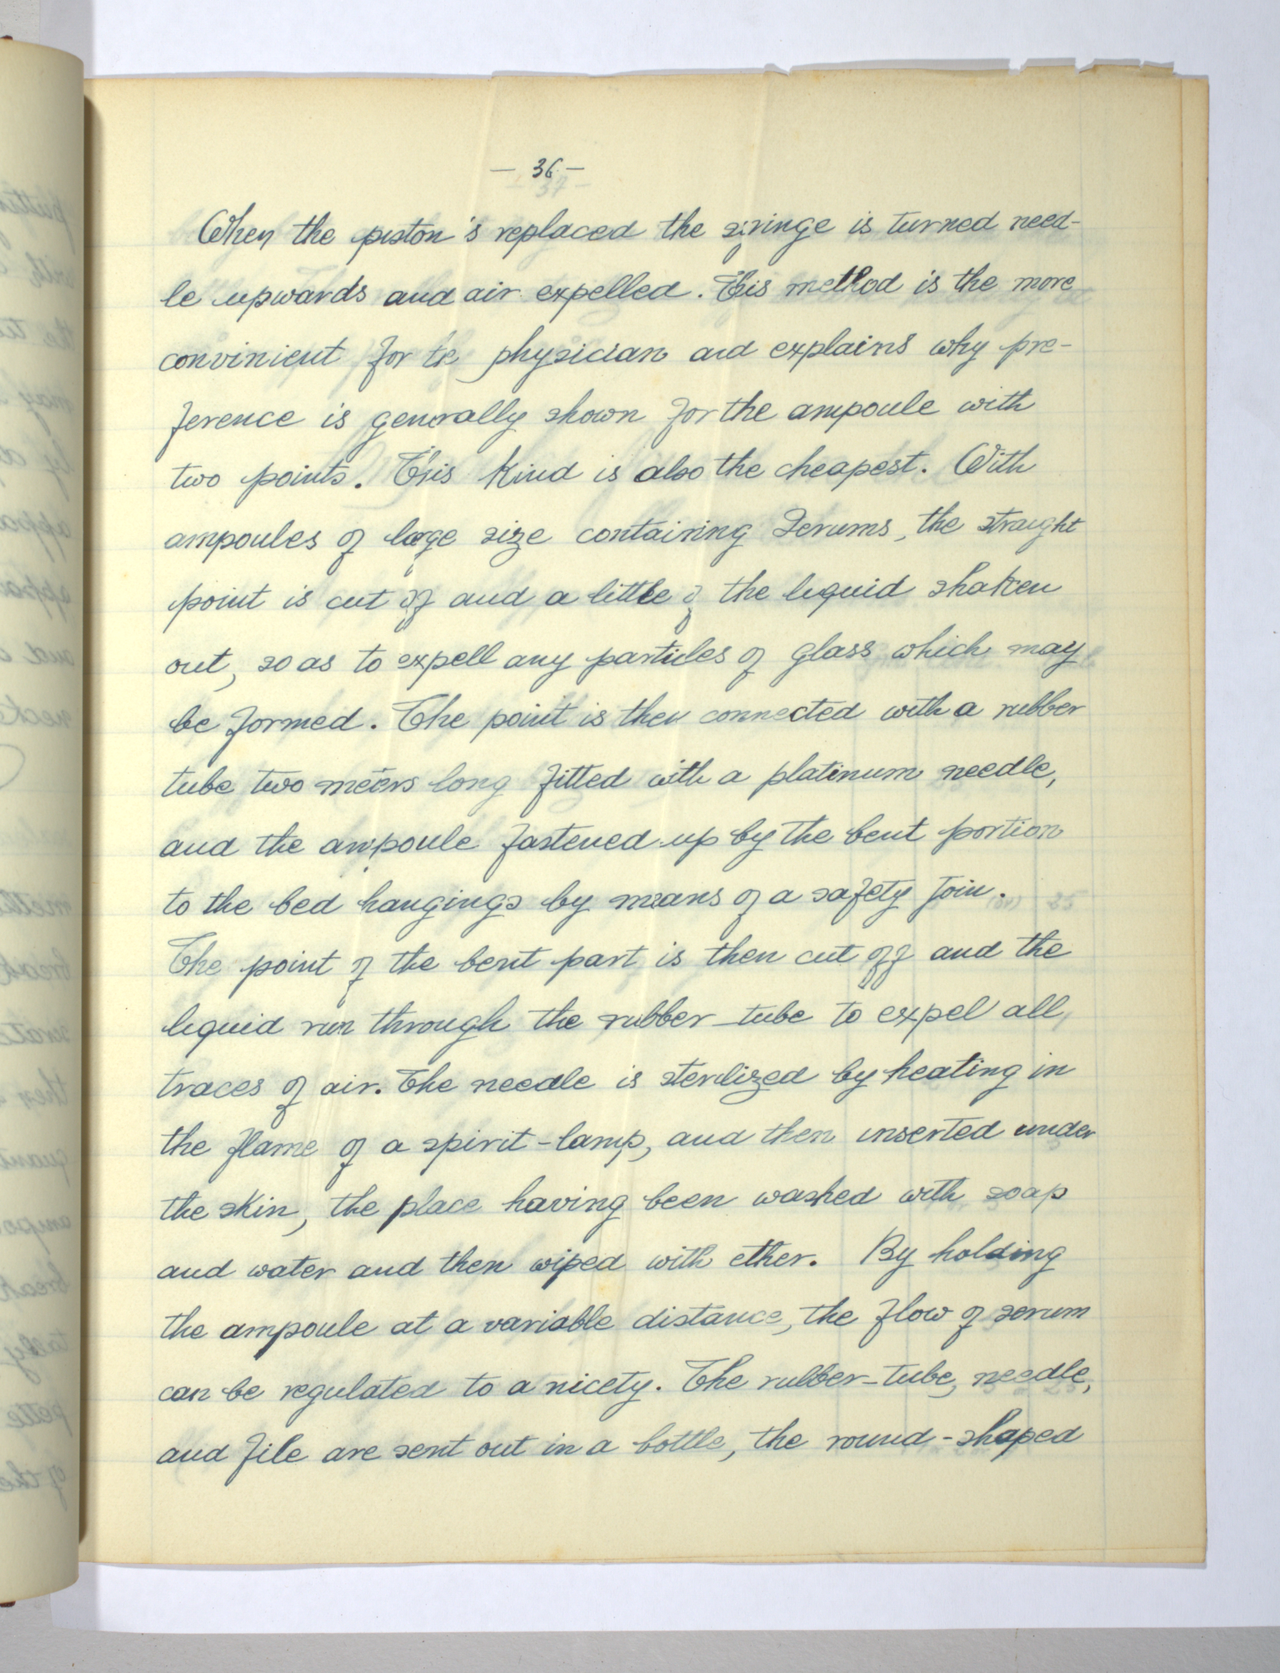 - 36 -
When the piston is replaced the siringe is turned need-
le upwards and air expelled. This method is the more
convinient for the physician and explains why pre-
ference is generally shown for the ampoule with
two points. This kind is also the cheapest. With
ampoules of large size containing Serums, the straight
point is cut of and a little of the liquid shaken
out, so as to expell any particles of glass which may
be formed. The point is then connected with a rubber
tube two meters long fitted with a platinum needle,
and the ampoule fastened up by the bent portion
to the bed hangings by means of a safety join.
The point of the bent part is then cut off and the
liquid run through the rubber tube to expel all
traces of air. The needle is sterilized by heating in
the flame of a spirit-lamp, and then inserted under
the skin, the place having been washed with soap
and water and then wiped with ether. By holding
the ampoule at a variable distance, the flow of serum
can be regulated to a nicety. The rubber-tube, needle,
and file are sent out in a bottle, the round-shaped